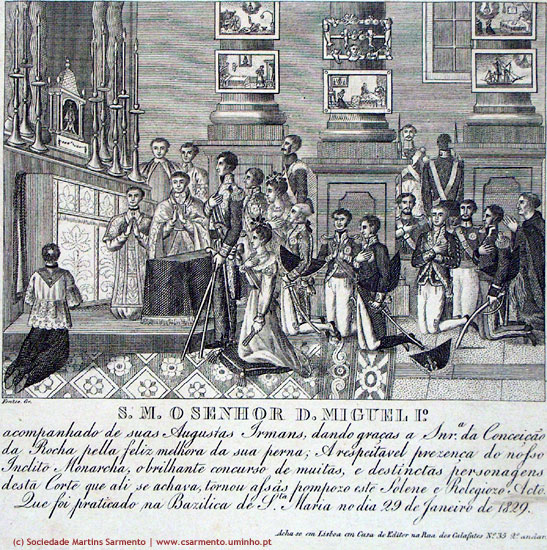 Fontes Gr.
S. M. O SENHOR D. MIGUEL Iº
acompanhado de suas Augustas Irmans, dando graças a Snr.ª da Conceição
da Rocha pella feliz melhora da sua perna; A respeitavel prezença do nosso
Inclito Monarcha, o brilhante concurso de muitas, e destinctas personagens
desta Corte que ali se achava, tornou assás pompozo este Solene e Relegiozo Acto.
Que foi praticado na Bazilica de S.ta Maria no dia 29 de Janeiro de 1829.
Acha-se em Lisboa em Casa do Editor na Rua dos Calafates Nº 35 2º andar
(c) Sociedade Martins Sarmento | www.csarmento.uminho.pt